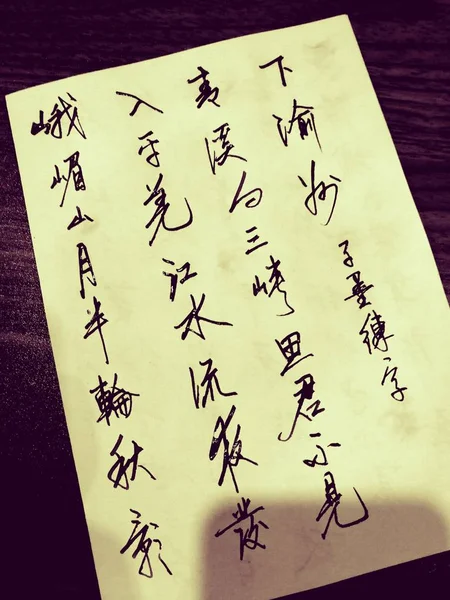 峨嵋山月半輪秋影
入平羌江水流夜發
青溪向三峡思君不見
下渝州
子墨練字